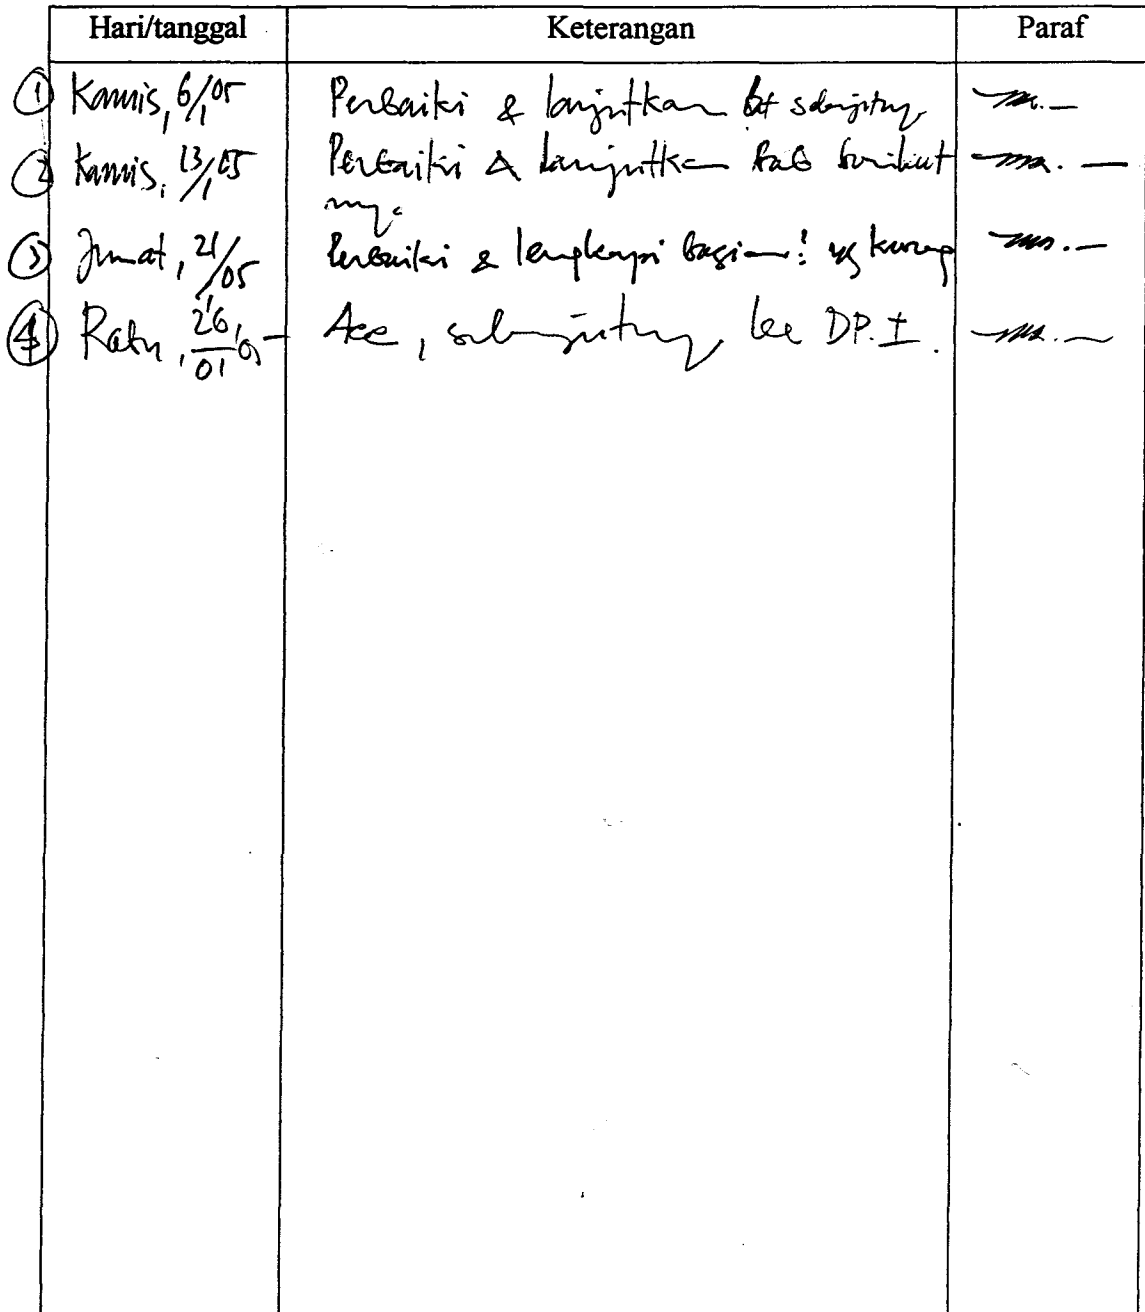 Hari/tanggal Keterangan Paraf
① Kamis, 6/1 05 Perbaiki & lanjutkan selanjutnya
② Kamis, 13/1 05 Perbaiki & lanjutkan bab berikut
nya.
③ Jumat, 21/1 05 Perbaiki & lengkapi bagian² yg kurang
④ Rabu, 26/01 05 Acc, selanjutnya ke DP. I.